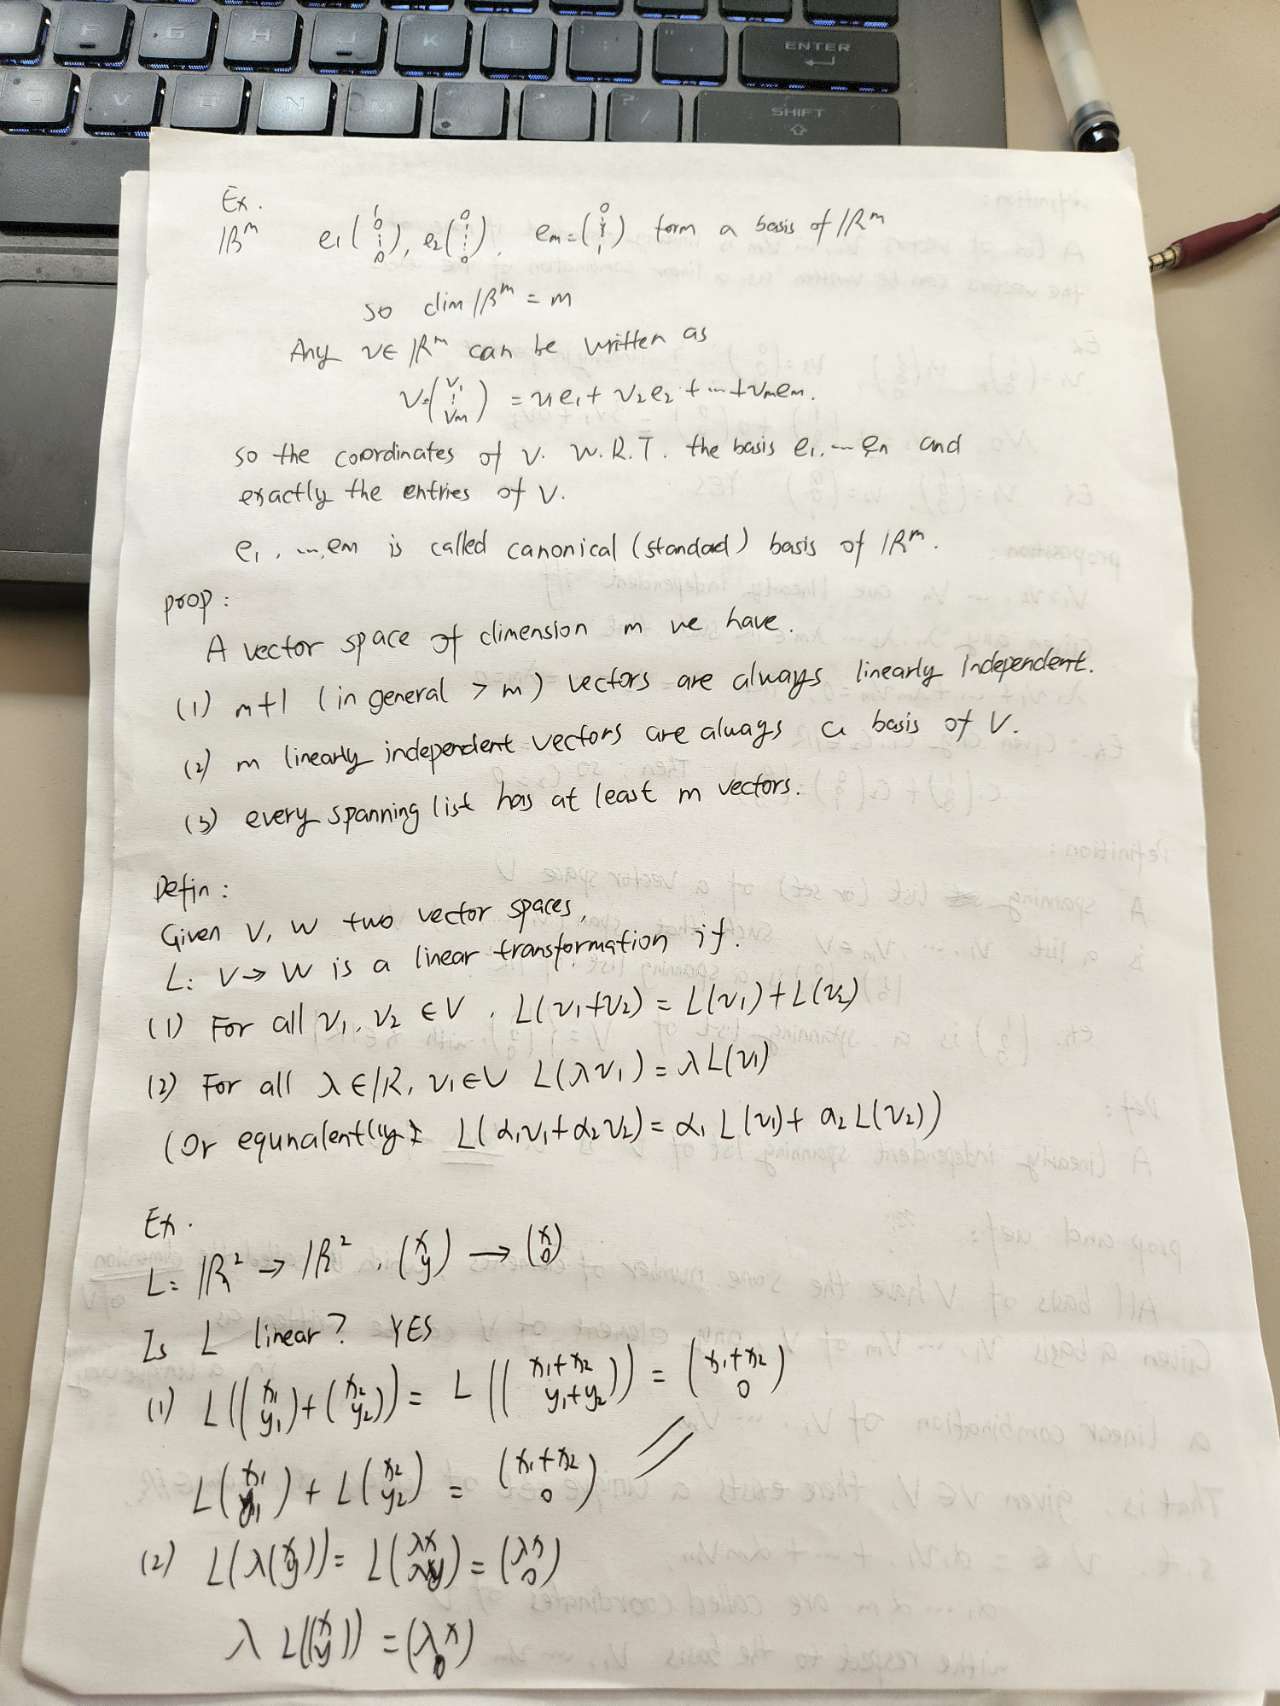 F G H J K L : ; " ' ENTER
V B N M < , > . ? / SHIFT
Ex.
ℝᵐ e₁(1 0 ⋮ 0), e₂(0 ⋮ 0), eₘ=(0 ⋮ 1) form a basis of ℝᵐ
so dim ℝᵐ = m
Any v∈ ℝᵐ can be written as
v=(v₁ ⋮ vₘ) = v₁e₁+ v₂e₂ + ⋯ + vₘeₘ.
so the coordinates of v. W.R.T. the basis e₁, ⋯ eₙ and
exactly the entries of v.
e₁, ⋯, eₘ is called canonical (standad) basis of ℝᵐ.
prop:
A vector space of dimension m ve have.
(1) m+1 (in general > m) vectors are always linearly Independent.
(2) m linearly independent vectors are always a basis of V.
(3) every spanning list has at least m vectors.
Defin:
Given V, W two vector spaces,
L: V→ W is a linear transformation if.
(1) For all v₁, v₂ ∈V, L(v₁+v₂) = L(v₁)+L(v₂)
(2) For all λ∈ℝ, v₁∈V L(λv₁) = λL(v₁)
(Or equnalently: L(α₁v₁+α₂v₂)= α₁ L(v₁)+ α₂ L(v₂))
Ex.
L: ℝ² → ℝ², (x y) → (x 0)
Is L linear? YES
(1) L((x₁ y₁)+(x₂ y₂)) = L((x₁+x₂ y₁+y₂)) = (x₁+x₂ 0)
L(x₁ y₁) + L(x₂ y₂) = (x₁+x₂ 0)
(2) L(λ(x y)) = L(λx λy) = (λx 0)
λ L((x y)) = (λx 0)